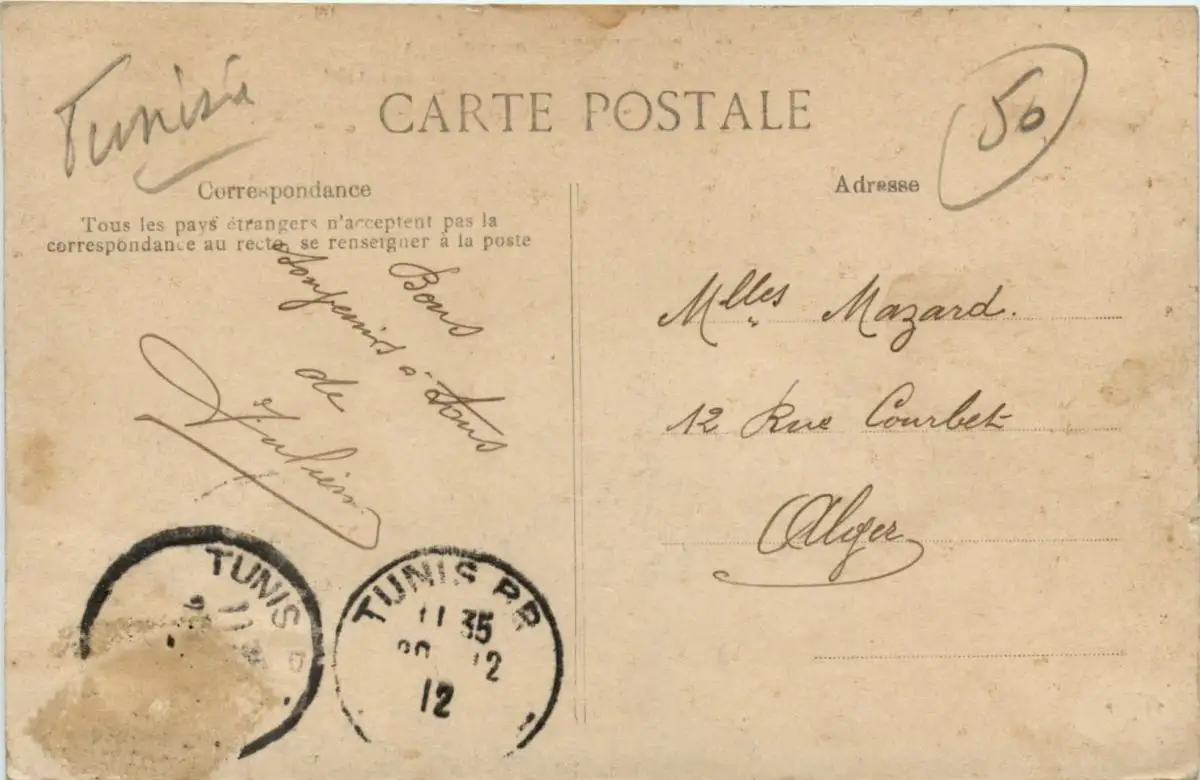 Tunisie
CARTE POSTALE
50
Correspondance
Adresse
Tous les pays étrangers n'acceptent pas la
correspondance au recto, se renseigner à la poste
Bons
souvenirs à tous
de
Julien
Mlles Mazard.
12 Rue Courbet
Alger
TUNIS
11
TUNIS R.P.
11 35
12
12